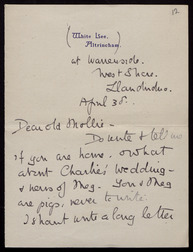 12
(White Gee.
Altrincham.)
at Warrenside.
West Shore.
Llandudno.
April 30.
Dear old Mollie -
Do write & tell me
if you are home, & what
about Charlie's wedding -
& news of Meg. You & Meg
are pigs, never to write.
I shant write a long letter